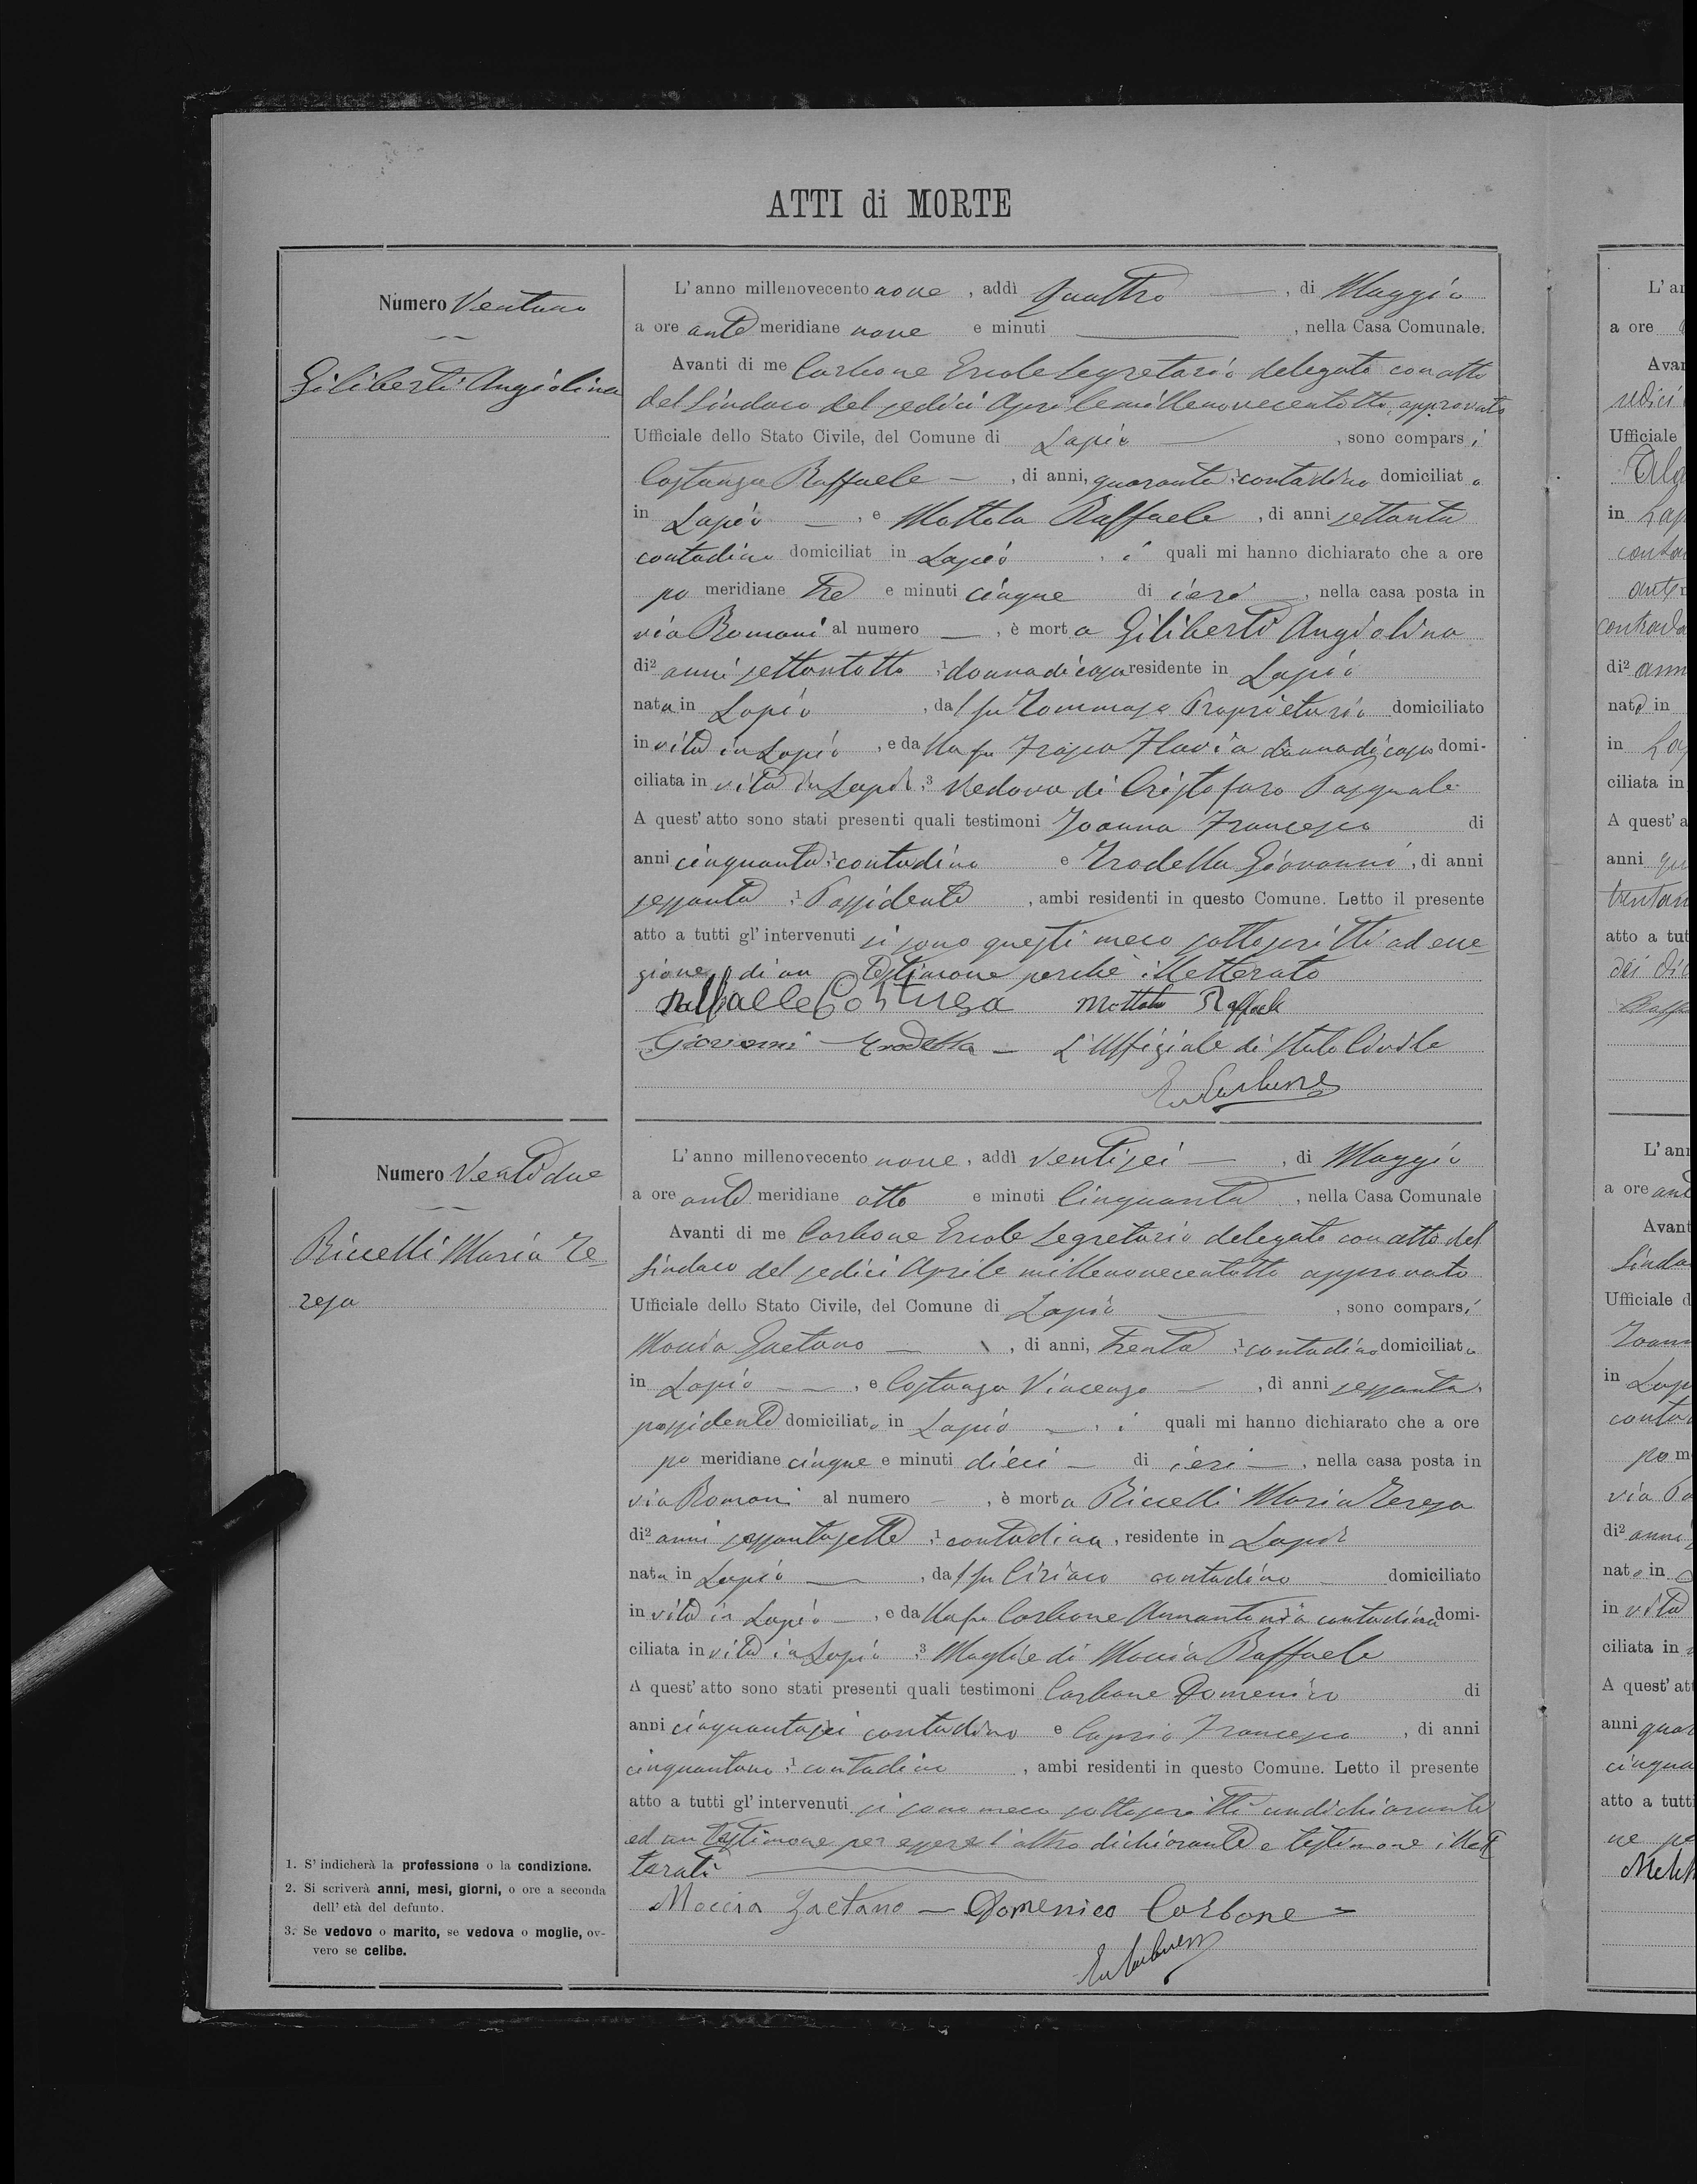 ATTI di MORTE
Numero Ventuno
Giliberti Angiolina
L'anno millenovecento nove, addì quattro, di Maggio
a ore ante meridiane nove e minuti, nella Casa Comunale.
Avanti di me Carbone Ercole Segretario delegato con atto
del Sindaco del sedici Aprile millenovecentotto, approvato
Ufficiale dello Stato Civile, del Comune di Lapio, sono comparsi
Costanza Raffaele, di anni, quaranta, contadino domiciliato
in Lapio, e Mottola Raffaele, di anni settanta
contadino domiciliat in Lapio, i quali mi hanno dichiarato che a ore
po meridiane tre e minuti cinque di ieri, nella casa posta in
via Romani al numero, è morta Giliberti Angiolina
di2 anni settantotto, 1 donna di casa residente in Lapio
nata in Lapio, dal fu Tommaso Proprietario domiciliato
in vita in Lapio, e da lla fu Flavia donna di casa domi-
ciliata in vita in Lapio, 3 Vedova di Cristofaro Pasquale
A quest'atto sono stati presenti quali testimoni Joanna Francesco di
anni cinquanta, 1 contadino e Trodella Giovanni, di anni
sessanta, 1 Possidente, ambi residenti in questo Comune. Letto il presente
atto a tutti gl'intervenuti si sono questi meco sottoscritti ad ecce-
zione di un testimone perchè illetterato
Raffaele Costanza Mottola Raffaele
Giovanni Trodella - L'Uffiziale di Stato Civile
Er Carbone
Numero Ventidue
Riccelli Maria Te-
resa
L'anno millenovecento nove, addì ventisei, di Maggio
a ore ante meridiane otto e minuti cinquanta, nella Casa Comunale
Avanti di me Carbone Ercole Segretario delegato con atto del
Sindaco del sedici Aprile millenovecentotto approvato
Ufficiale dello Stato Civile, del Comune di Lapio, sono comparsi
Moccia Gaetano, di anni, trenta, 1 contadino domiciliato
in Lapio, e Costanza Vincenzo, di anni sessanta,
possidente domiciliato in Lapio, i quali mi hanno dichiarato che a ore
po meridiane cinque e minuti dieci di ieri, nella casa posta in
via Romani al numero, è morta Riccelli Maria Teresa
di2 anni sessantasette, 1 contadina, residente in Lapio
nata in Lapio, dal fu Ciriaco contadino domiciliato
in vita in Lapio, e da lla fu Carbone Annantonia contadina domi-
ciliata in vita in Lapio, 3 Moglie di Moccia Raffaele
A quest'atto sono stati presenti quali testimoni Carbone Domenico di
anni cinquantasei contadino e Caprio Francesco, di anni
cinquantuno, 1 contadino, ambi residenti in questo Comune. Letto il presente
atto a tutti gl'intervenuti si sono meco sottoscritti un dichiarante
ed un testimone per essere l'altro dichiarante e testimone illet-
terati
Moccia Gaetano - Domenico Carbone
Er Carbone
1. S'indicherà la professione o la condizione.
2. Si scriverà anni, mesi, giorni, o ore a seconda
dell'età del defunto.
3. Se vedovo o marito, se vedova o moglie, ov-
vero se celibe.